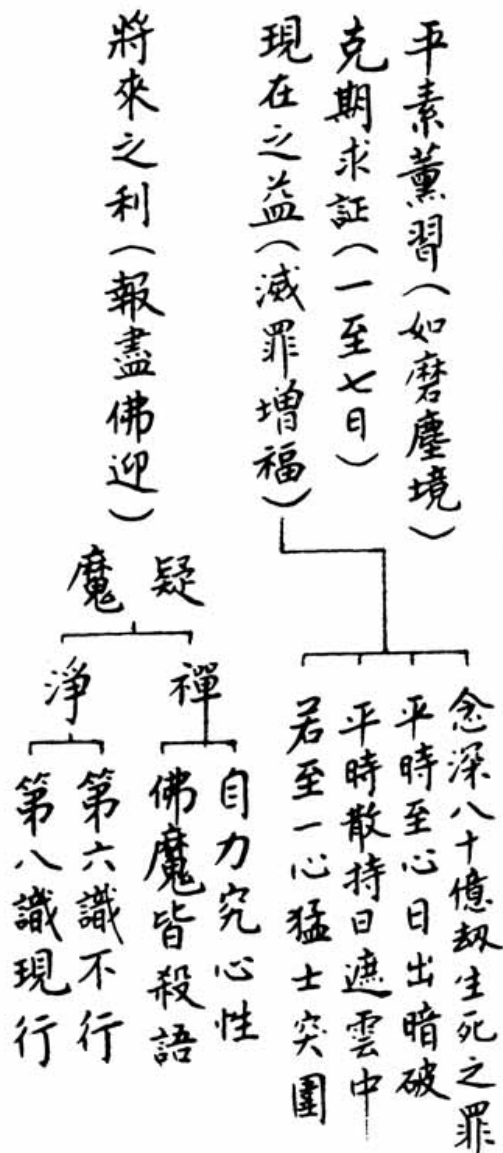 平素薰習（如磨塵境）
克期求証（一至七日）
現在之益（滅罪增福）
念深八十億刼生死之罪
平時至心日出暗破
平時散持日遮雲中
若至一心猛士突圍
將來之利（報盡佛迎）
疑魔
禪
自力究心性
佛魔皆殺語
淨
第六識不行
第八識現行